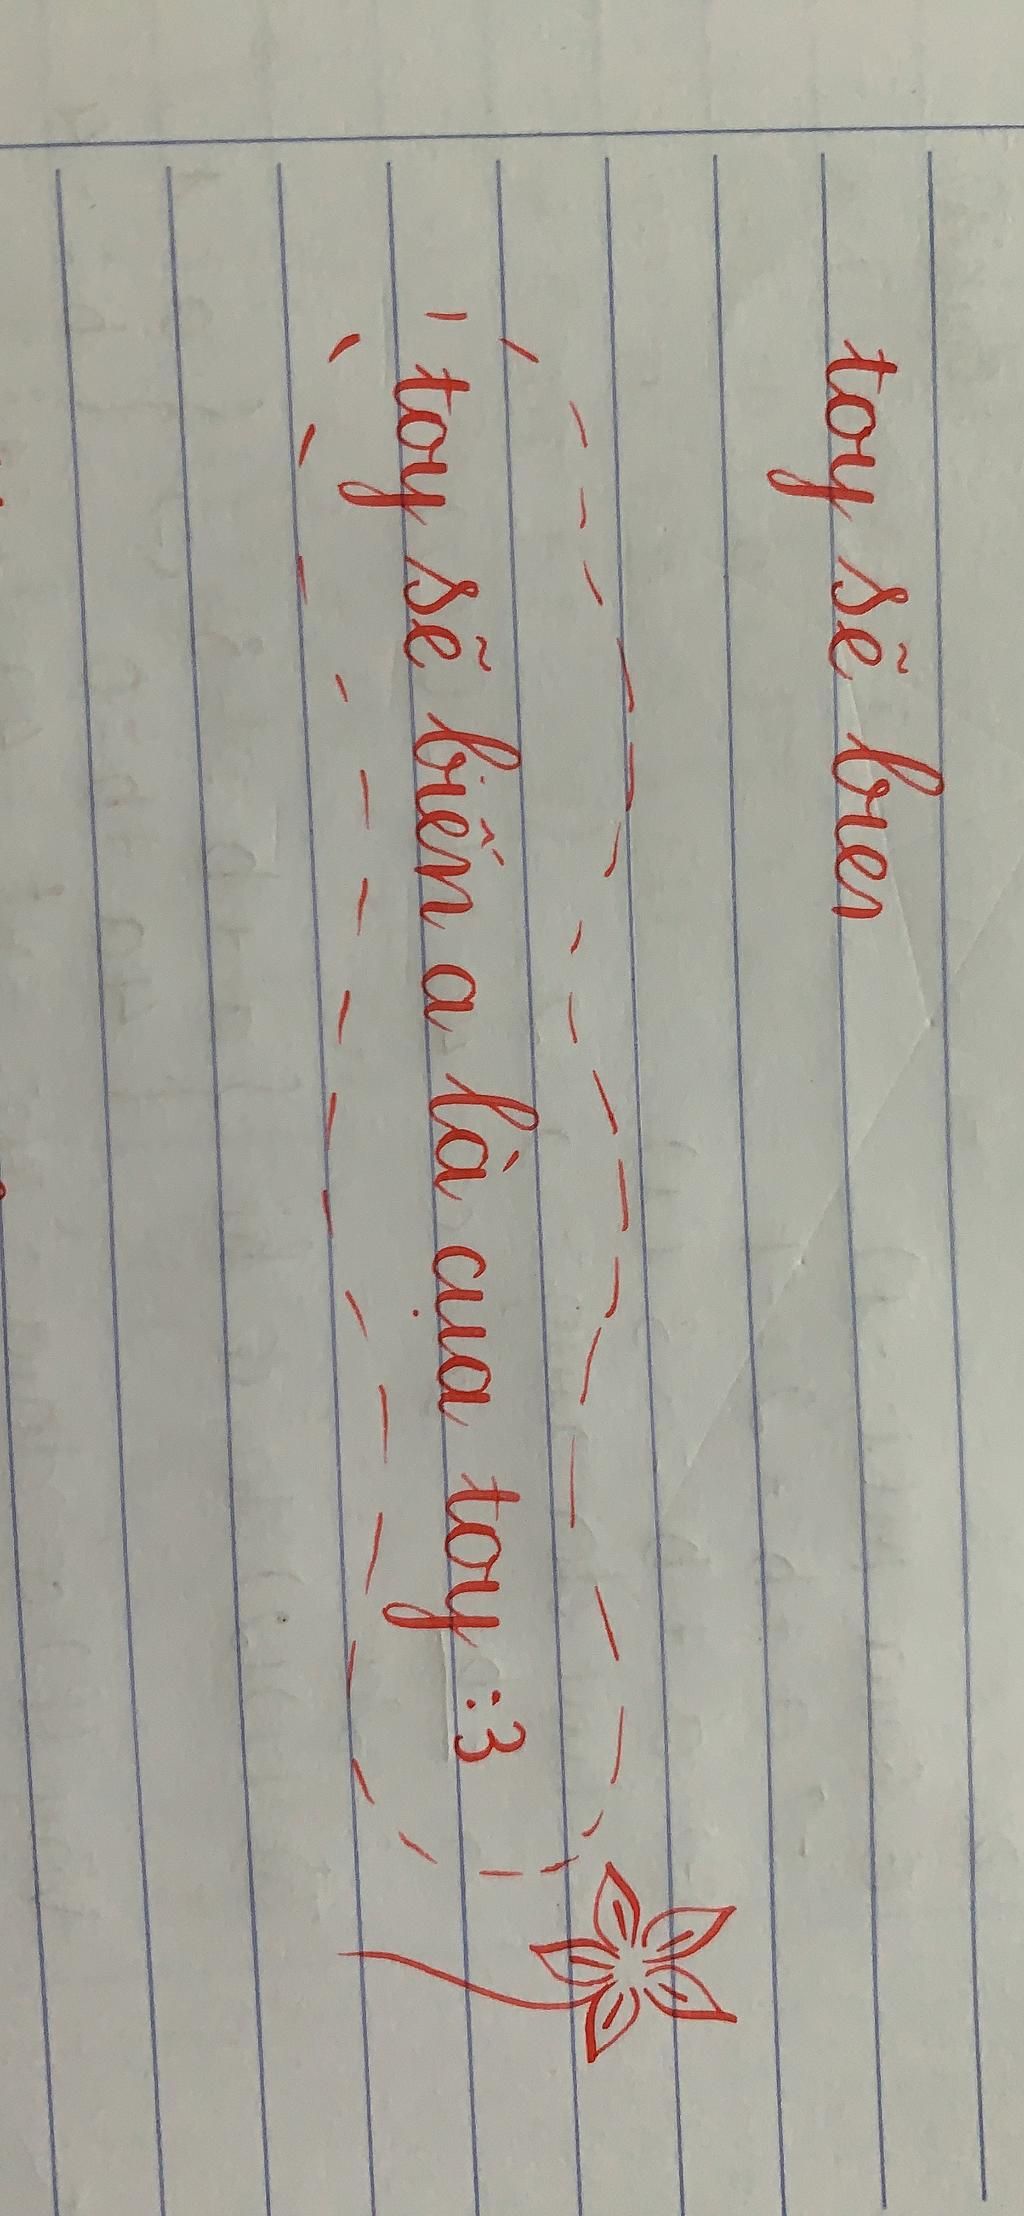 toy sẽ bier
toy sẽ biến a là cuả toy :3